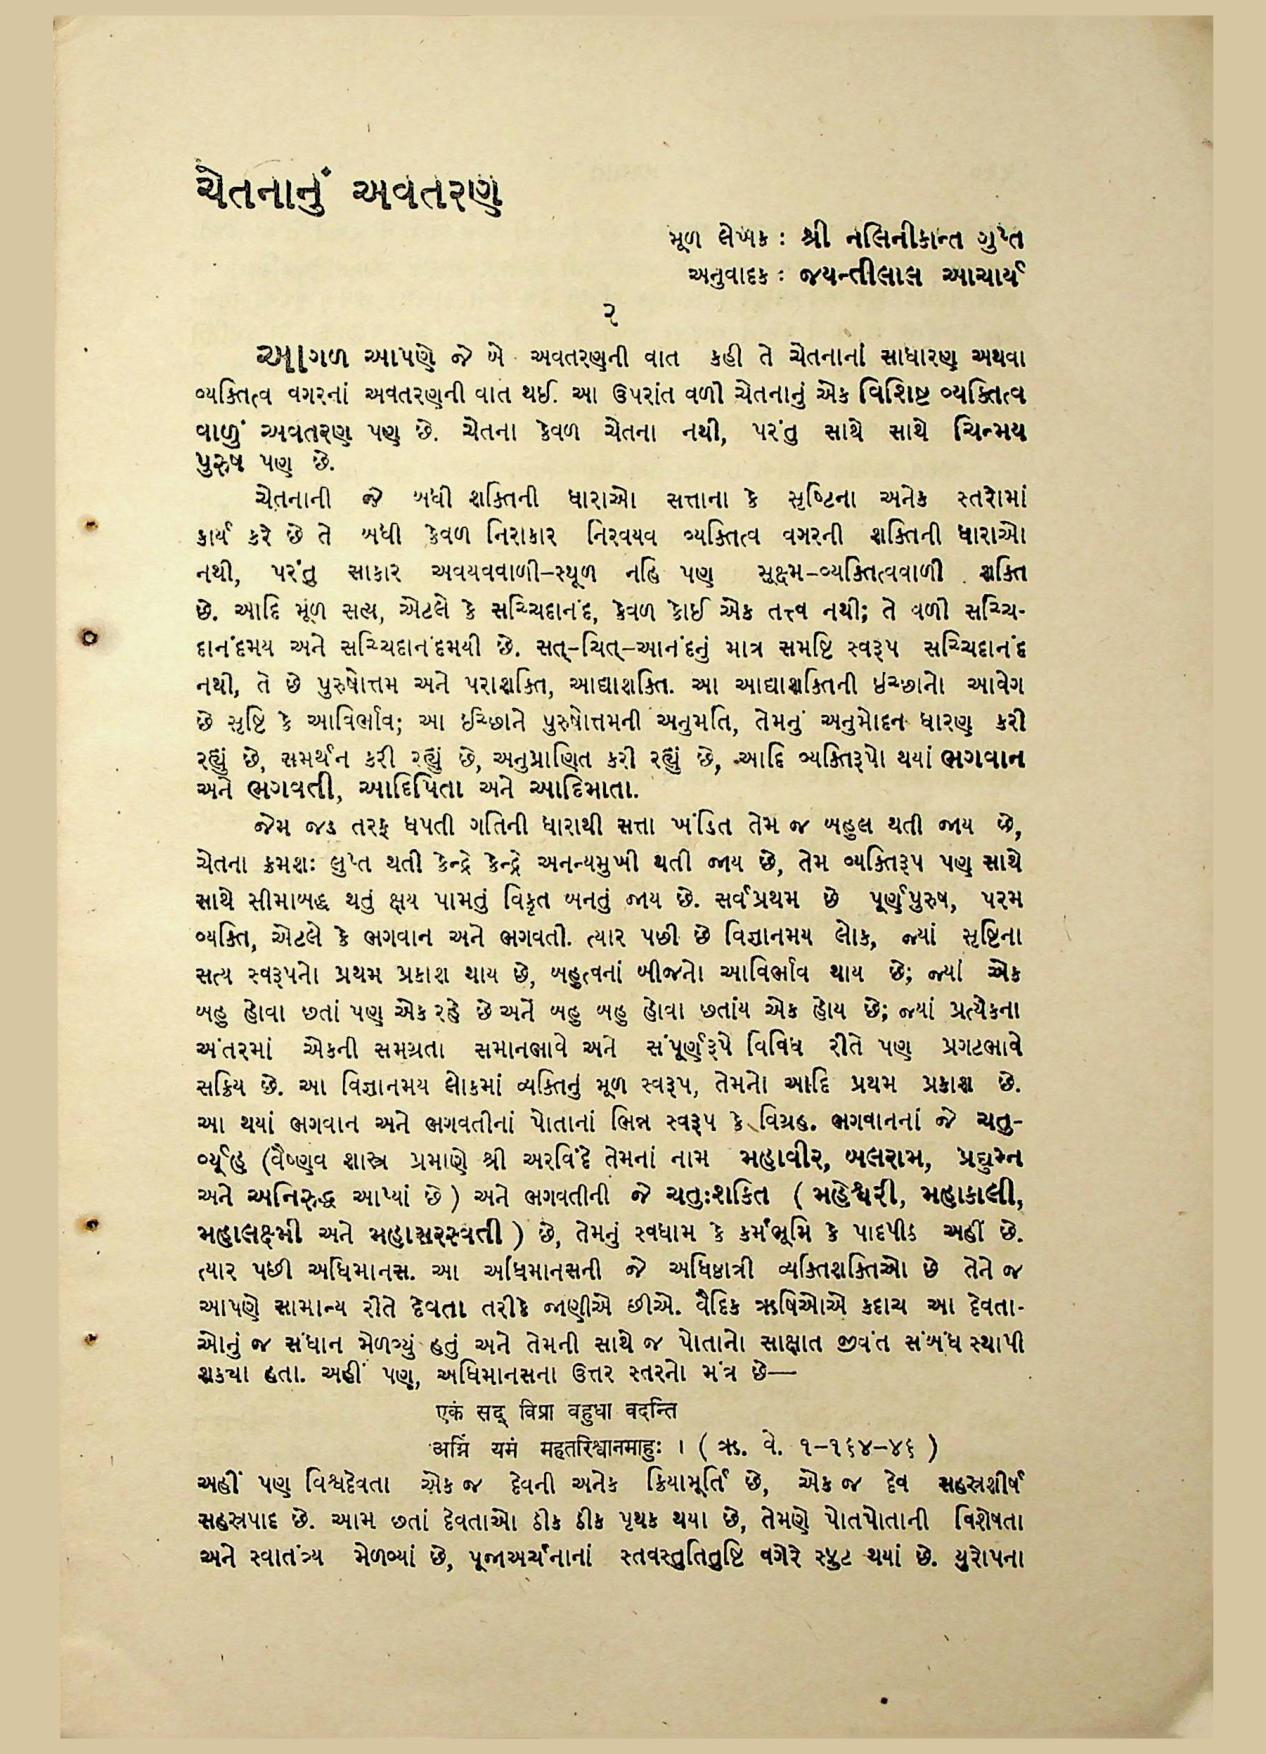 ચેતનાનું અવતરણ
મૂળ લેખક : શ્રી નલિનીકાન્ત ગુપ્ત
અનુવાદક : જયન્તીલાલ આચાર્ય
૨
આગળ આપણે જે બે અવતરણની વાત કહી તે ચેતનાનાં સાધારણ અથવા
વ્યક્તિત્વ વગરનાં અવતરણની વાત થઈ. આ ઉપરાંત વળી ચેતનાનું એક વિશિષ્ટ વ્યક્તિત્વ
વાળું અવતરણ પણ છે. ચેતના કેવળ ચેતના નથી, પરંતુ સાથે સાથે ચિન્મય
પુરુષ પણ છે.
ચેતનાની જે બધી શક્તિની ધારાઓ સત્તાના કે સૃષ્ટિના અનેક સ્તરોમાં
કાર્ય કરે છે તે બધી કેવળ નિરાકાર નિરવયવ વ્યક્તિત્વ વગરની શક્તિની ધારાઓ
નથી, પરંતુ સાકાર અવયવવાળી–સ્થૂળ નહિ પણ સૂક્ષ્મ–વ્યક્તિત્વવાળી શક્તિ
છે. આદિ મૂળ સત્ય, એટલે કે સચ્ચિદાનંદ, કેવળ કોઈ એક તત્ત્વ નથી; તે વળી સચ્ચિ-
દાનંદમય અને સચ્ચિદાનંદમયી છે. સત્–ચિત્–આનંદનું માત્ર સમષ્ટિ સ્વરૂપ સચ્ચિદાનંદ
નથી, તે છે પુરુષોત્તમ અને પરાશક્તિ, આદ્યાશક્તિ. આ આદ્યાશક્તિની ઇચ્છાનો આવેગ
છે સૃષ્ટિ કે આવિર્ભાવ; આ ઈચ્છાને પુરુષોત્તમની અનુમતિ, તેમનું અનુમોદન ધારણ કરી
રહ્યું છે, સમર્થન કરી રહ્યું છે, અનુપ્રાણિત કરી રહ્યું છે, આદિ વ્યક્તિરૂપો થયાં ભગવાન
અને ભગવતી, આદિપિતા અને આદિમાતા.
જેમ જડ તરફ ધપતી ગતિની ધારાથી સત્તા ખંડિત તેમ જ બહુલ થતી જાય છે,
ચેતના ક્રમશઃ લુપ્ત થતી કેન્દ્રે કેન્દ્રે અનન્યમુખી થતી જાય છે, તેમ વ્યક્તિરૂપ પણ સાથે
સાથે સીમાબદ્ધ થતું ક્ષય પામતું વિકૃત બનતું જાય છે. સર્વપ્રથમ છે પૂર્ણપુરુષ, પરમ
વ્યક્તિ, એટલે કે ભગવાન અને ભગવતી. ત્યાર પછી છે વિજ્ઞાનમય લોક, જ્યાં સૃષ્ટિના
સત્ય સ્વરૂપનો પ્રથમ પ્રકાશ થાય છે, બહુત્વનાં બીજનો આવિર્ભાવ થાય છે; જ્યાં એક
બહુ હોવા છતાં પણ એક રહે છે અને બહુ બહુ હોવા છતાંય એક હોય છે; જ્યાં પ્રત્યેકના
અંતરમાં એકની સમગ્રતા સમાનભાવે અને સંપૂર્ણરૂપે વિવિધ રીતે પણ પ્રગટભાવે
સક્રિય છે. આ વિજ્ઞાનમય લોકમાં વ્યક્તિનું મૂળ સ્વરૂપ, તેમનો આદિ પ્રથમ પ્રકાશ છે.
આ થયાં ભગવાન અને ભગવતીનાં પોતાનાં ભિન્ન સ્વરૂપ કે વિગ્રહ. ભગવાનનાં જે ચતુ-
ર્વ્યૂહ (વૈષ્ણવ શાસ્ત્ર પ્રમાણે શ્રી અરવિંદે તેમનાં નામ મહાવીર, બલરામ, પ્રદ્યુમ્ન
અને અનિરુદ્ધ આપ્યાં છે ) અને ભગવતીની જે ચતુઃશક્તિ ( મહેશ્વરી, મહાકાલી,
મહાલક્ષ્મી અને મહાસરસ્વતી ) છે, તેમનું સ્વધામ કે કર્મભૂમિ કે પાદપીઠ અહીં છે.
ત્યાર પછી અધિમાનસ. આ અધિમાનસની જે અધિષ્ઠાત્રી વ્યક્તિશક્તિઓ છે તેને જ
આપણે સામાન્ય રીતે દેવતા તરીકે જાણીએ છીએ. વૈદિક ઋષિઓએ કદાચ આ દેવતા-
ઓનું જ સંધાન મેળવ્યું હતું અને તેમની સાથે જ પોતાનો સાક્ષાત જીવંત સંબંધ સ્થાપી
શક્યા હતા. અહીં પણ, અધિમાનસના ઉત્તર સ્તરનો મંત્ર છે—
एकं सद् विप्रा वहुधा वदन्ति
अग्निं यमं महतरिश्वानमाहुः । ( ऋ. वे. १–१६४–४६ )
અહીં પણ વિશ્વદેવતા એક જ દેવની અનેક ક્રિયામૂર્તિ છે, એક જ દેવ સહસ્રશીર્ષ
સહસ્રપાદ છે. આમ છતાં દેવતાઓ ઠીક ઠીક પૃથક થયા છે, તેમણે પોતપોતાની વિશેષતા
અને સ્વાતંત્ર્ય મેળવ્યાં છે, પૂજાઅર્ચનાનાં સ્તવસ્તુતિતુષ્ટિ વગેરે સ્ફુટ થયાં છે. યુરોપના